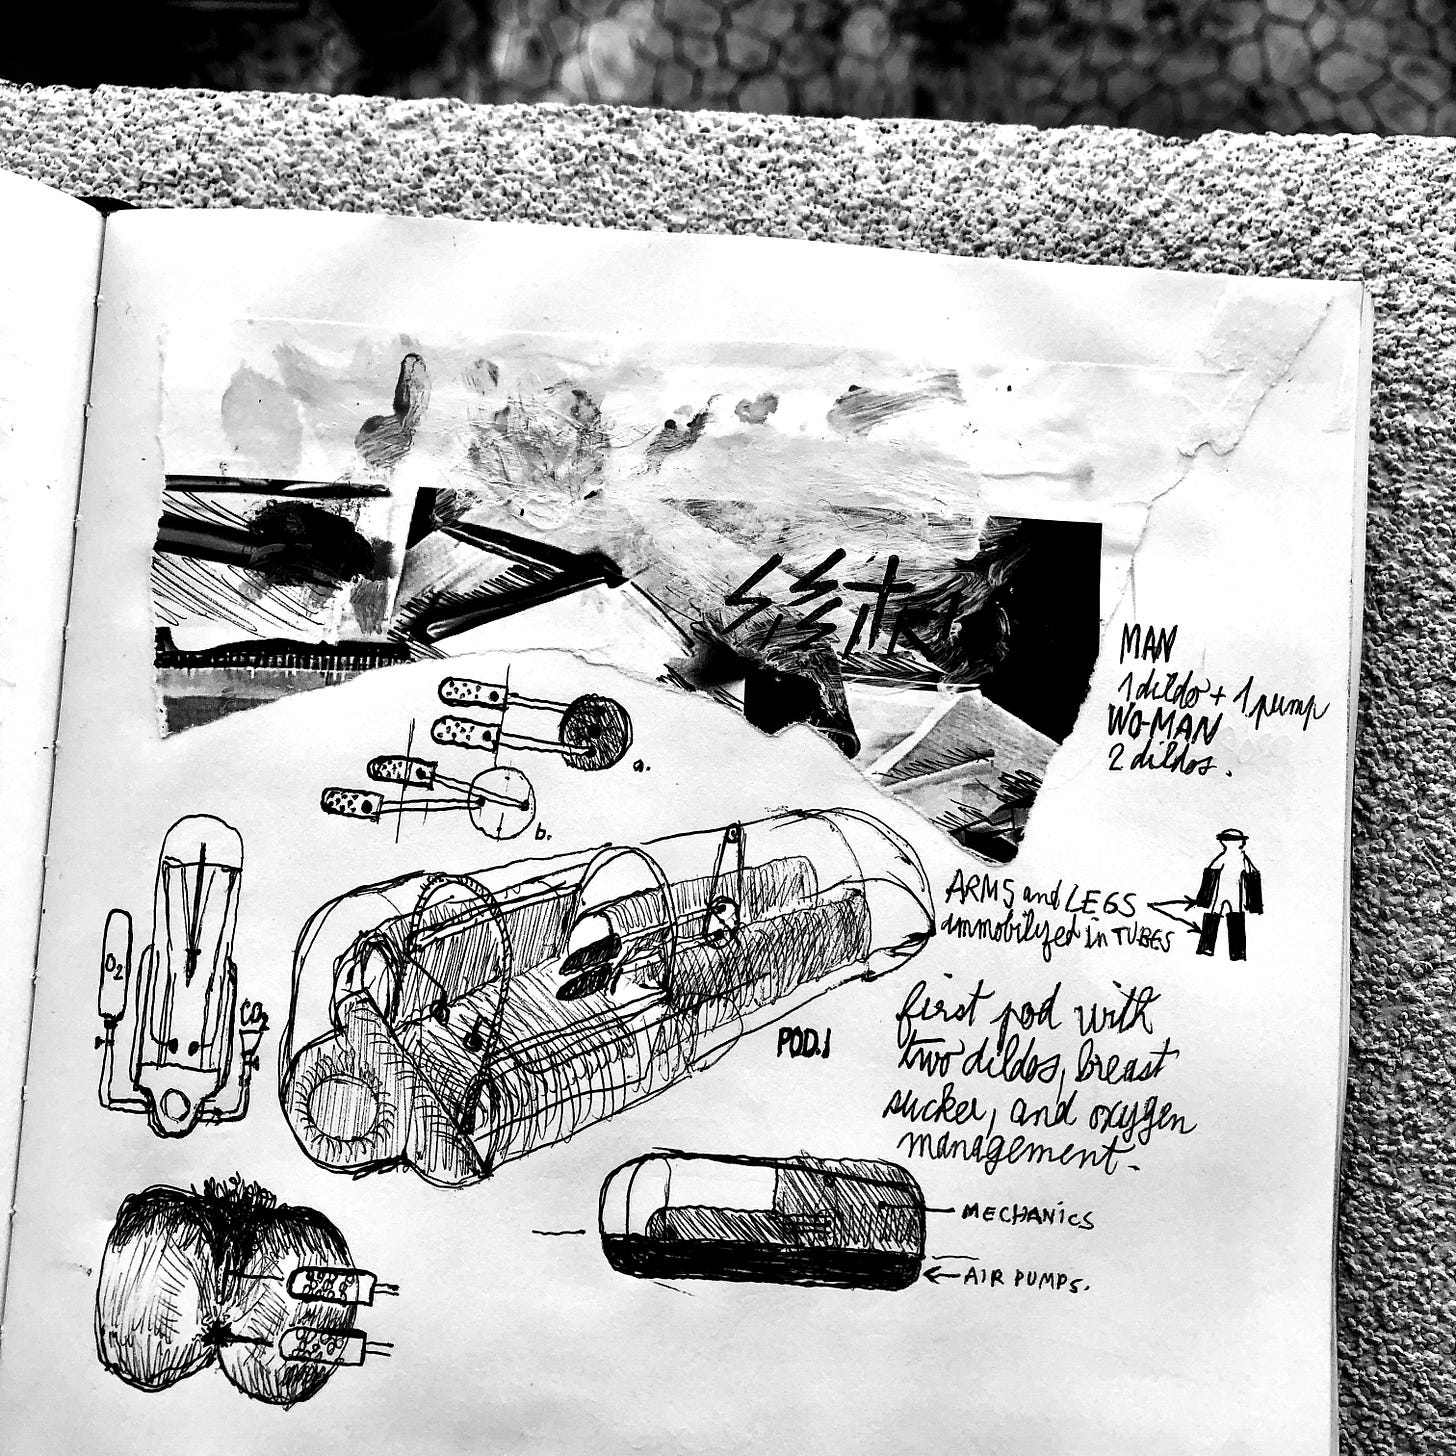 MAN
1 dildo + 1 pump
WO-MAN
2 dildos.
a.
b.
ARMS and LEGS
immobilyzed in TUBES
O2
CO2
POD.1
first pod with
two dildos, breast
sucker, and oxygen
management.
MECHANICS
AIR PUMPS.